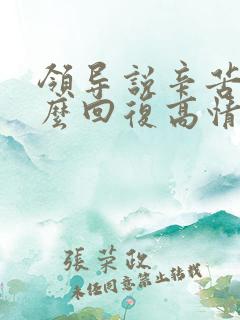 領导說辛苦
麼回復高情
張荣政
未经同意禁止转载